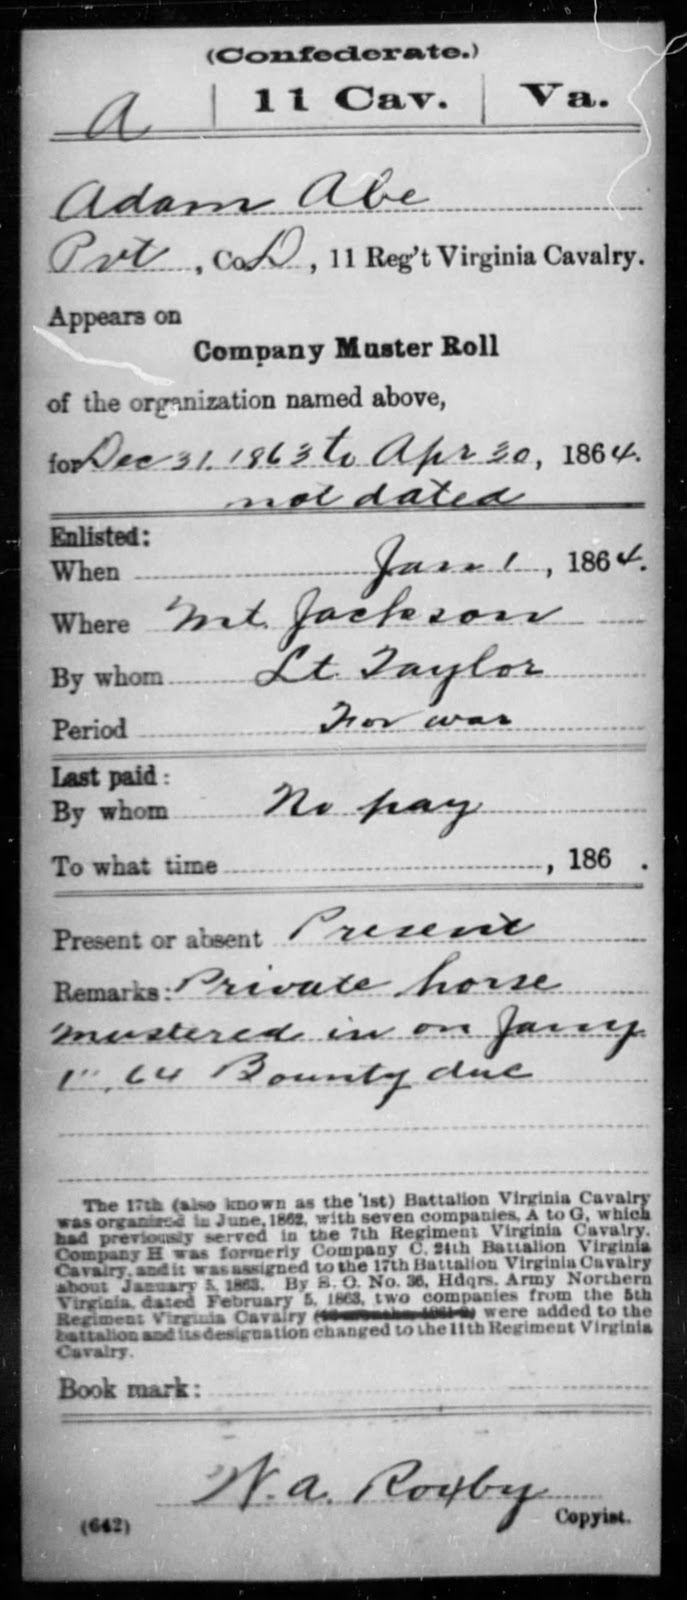 (Confederate.)
A | 11 Cav. | Va.
Adam Abe
Pvt, Co. D, 11 Reg't Virginia Cavalry.
Appears on
Company Muster Roll
of the organization named above,
for Dec 31, 1863 to Apr 30, 1864.
not dated
Enlisted:
When Jan 1, 1864.
Where Mt. Jackson
By whom Lt Taylor
Period For war
Last paid:
By whom No pay
To what time , 186 .
Present or absent Present
Remarks: Private horse
mustered in on Jany
1", 64 Bounty due
The 17th (also known as the 1st) Battalion Virginia Cavalry
was organized in June, 1862, with seven companies, A to G, which
had previously served in the 7th Regiment Virginia Cavalry.
Company H was formerly Company C, 24th Battalion Virginia
Cavalry, and it was assigned to the 17th Battalion Virginia Cavalry
about January 5, 1863. By S. O. No. 36, Hdqrs. Army Northern
Virginia, dated February 5, 1863, two companies from the 5th
Regiment Virginia Cavalry were added to the
battalion and its designation changed to the 11th Regiment Virginia
Cavalry.
Book mark:
W. A. Roxby
(642) Copyist.